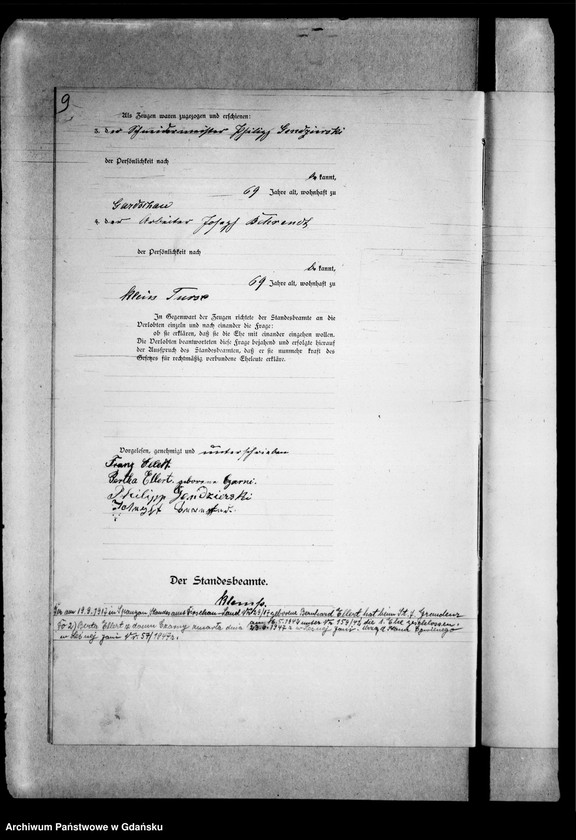 9
Als Zeugen waren zugezogen und erschienen:
3. der Schneidermeister Philipp Gendzierski
der Persönlichkeit nach
be kannt,
69 Jahre alt, wohnhaft zu
Gardschau
4. der Arbeiter Joseph Behrendt
der Persönlichkeit nach
be kannt,
69 Jahre alt, wohnhaft zu
Klein Turse
In Gegenwart der Zeugen richtete der Standesbeamte an die
Verlobten einzeln und nach einander die Frage:
ob sie erklären, daß sie die Ehe mit einander eingehen wollen.
Die Verlobten beantworteten diese Frage bejahend und erfolgte hierauf
der Ausspruch des Standesbeamten, daß er sie nunmehr kraft des
Gesetzes für rechtmäßig verbundene Eheleute erkläre.
Vorgelesen, genehmigt und unterschrieben
Franz Ellert
Bertha Ellert geborene Czarni.
Philipp Gendzierski
Joseph
Der Standesbeamte.
am 19.9.1917 in Spangau Standesamt Land Nr geborene Bernhard Ellert, hat beim St. A.
Do 2) Berta Ellert z domu Czarny zmarła dnia 1947 r. w
w Nr. 59/1947 r.
Archiwum Państwowe w Gdańsku